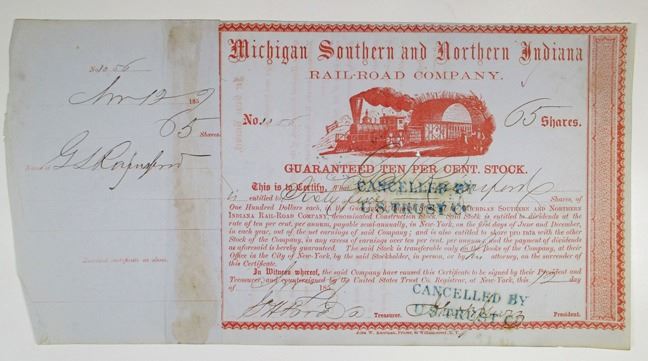 No. 1056
Nov 12 185
65 Shares
G L
Michigan Southern and Northern Indiana
RAIL-ROAD COMPANY.
No. 1056
65 Shares.
GUARANTEED TEN PER CENT. STOCK.
This is to Certify, That
CANCELLED BY
U.S. TRUST Co
is entitled to Sixty five Shares, of
One Hundred Dollars each, in the MICHIGAN SOUTHERN AND NORTHERN
INDIANA RAIL-ROAD COMPANY, denominated Construction Stock. Said Stock is entitled to dividends at the
rate of ten per cent. per annum, payable semi-annually, in New-York, on the first days of June and December,
in each year, out of the net earnings of said Company; and is also entitled to share pro rata with the other
Stock of the Company, in any excess of earnings over ten per cent. per annum, and the payment of dividends
as aforesaid is hereby guaranteed. The said Stock is transferable only on the Books of the Company, at their
Office in the City of New-York, by the said Stockholder, in person, or by his attorney, on the surrender of
this Certificate.
In Witness whereof, the said Company have caused this Certificate to be signed by their President and
Treasurer, and countersigned by the United States Trust Co. Registrar, at New-York, this 12 day
of 185
CANCELLED BY
U.S. TRUST Co
Treasurer. President.